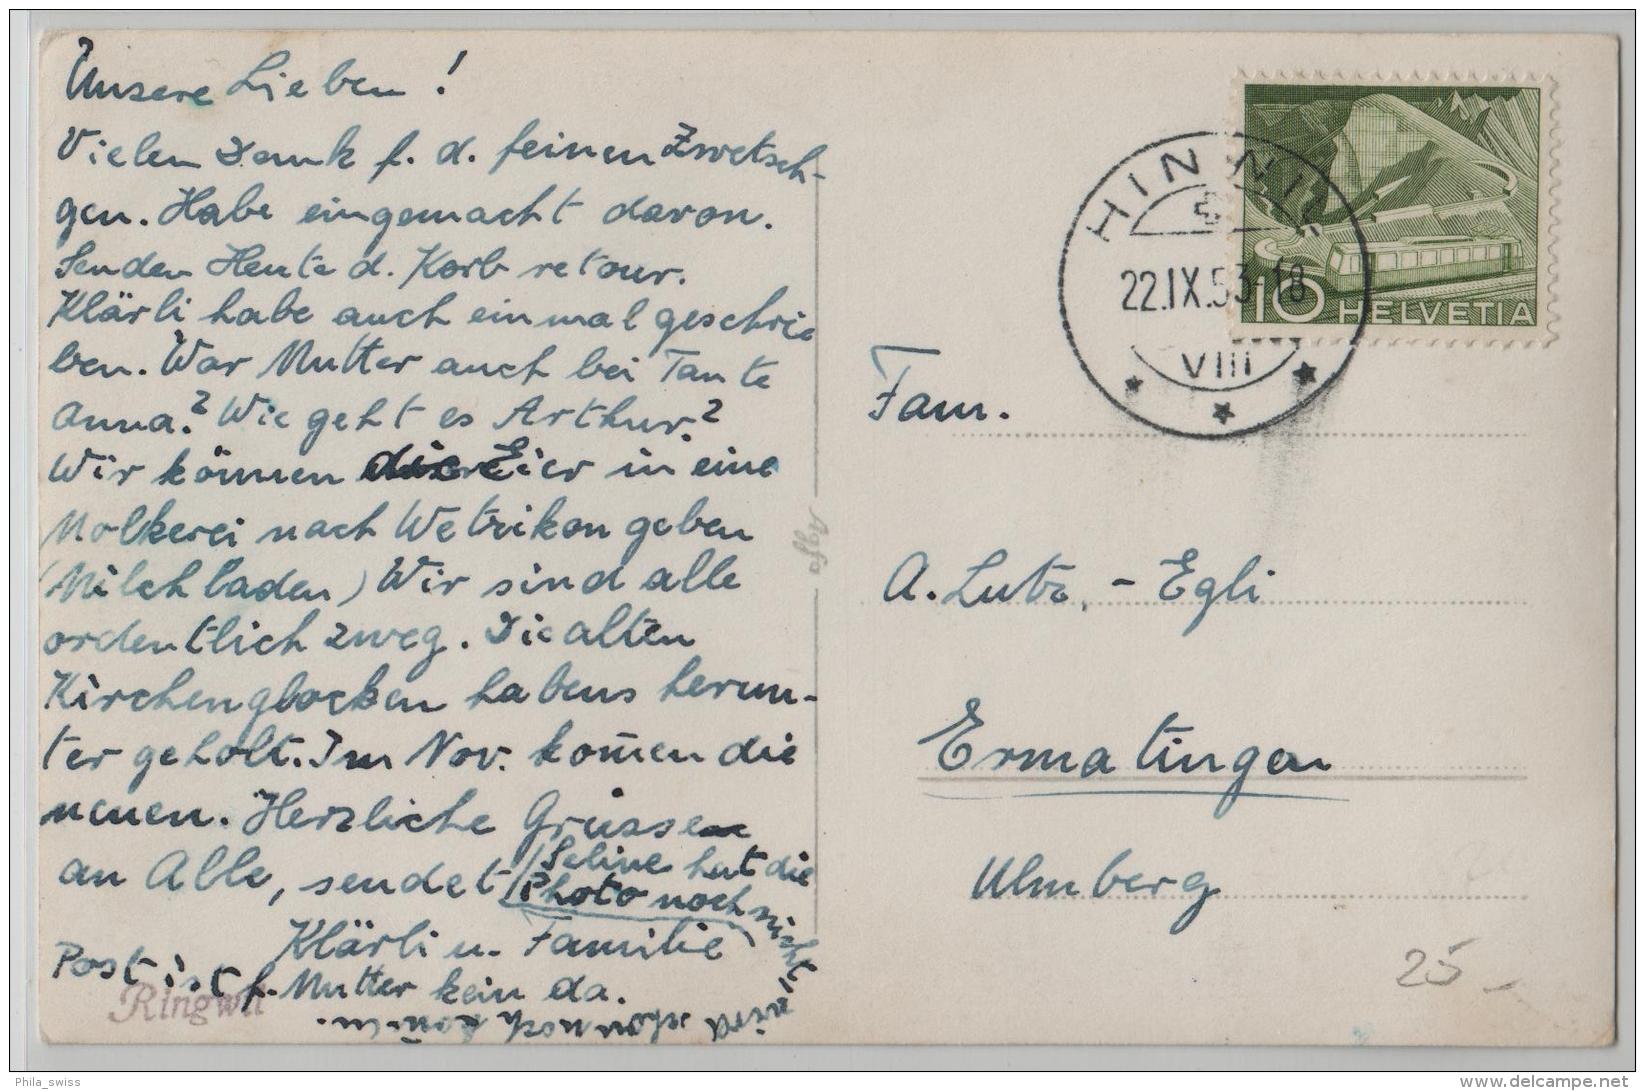 Unsere Lieben!
Vielen Dank f. d. feinen Zwetsch-
gen. Habe eingemacht davon.
Senden Heute d. Korb retour.
Klärli habe auch einmal geschrie
ben. War Mutter auch bei Tante
Anna? Wie geht es Arthur?
Wir können die Eier in eine
Molkerei nach Wetzikon geben
(Milchladen) Wir sind alle
ordentlich zweg. Die alten
Kirchenglocken habens herun-
ter geholt. Im Nov. kom̄en die
neuen. Herzliche Grüsse
an Alle, sendet
Klärli u. Familie
Seline hat die
Photo noch nicht, wird schon noch kom̄en.
Post ist f. Mutter kein da.
Ringwil
Agfa
HINWIL
22.IX.53-18
VIII
10 HELVETIA
Fam.
A. Lutz, - Egli
Ermatingen
Ulmberg
25 -
Phila_swiss
www.delcampe.net